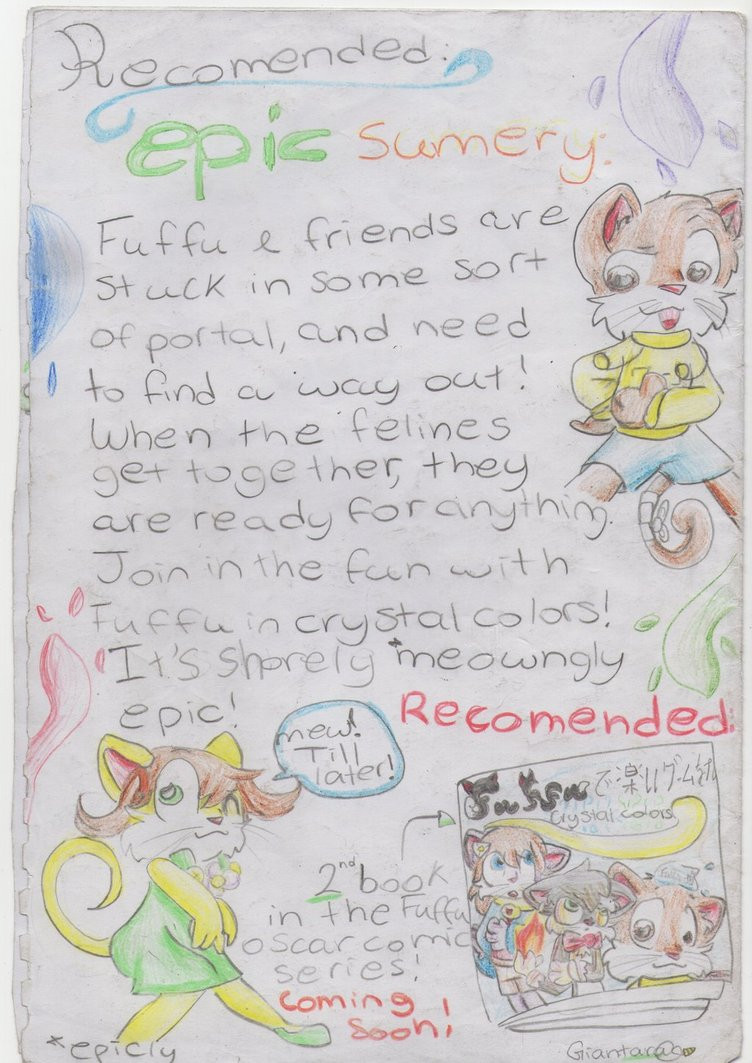 Recomended:
epic sumery:
Fuffu & friends are
stuck in some sort
of portal, and need
to find a way out!
When the felines
get together, they
are ready for anything.
Join in the fun with
Fuffu in crystal colors!
It's shorely *meowngly
epic!
Recomended:
mew!
Till
later!
Fuffuで楽しいゲーム
Crystal colors
2nd book
in the Fuffu
oscar comic
series!
coming
soon!
*epicly